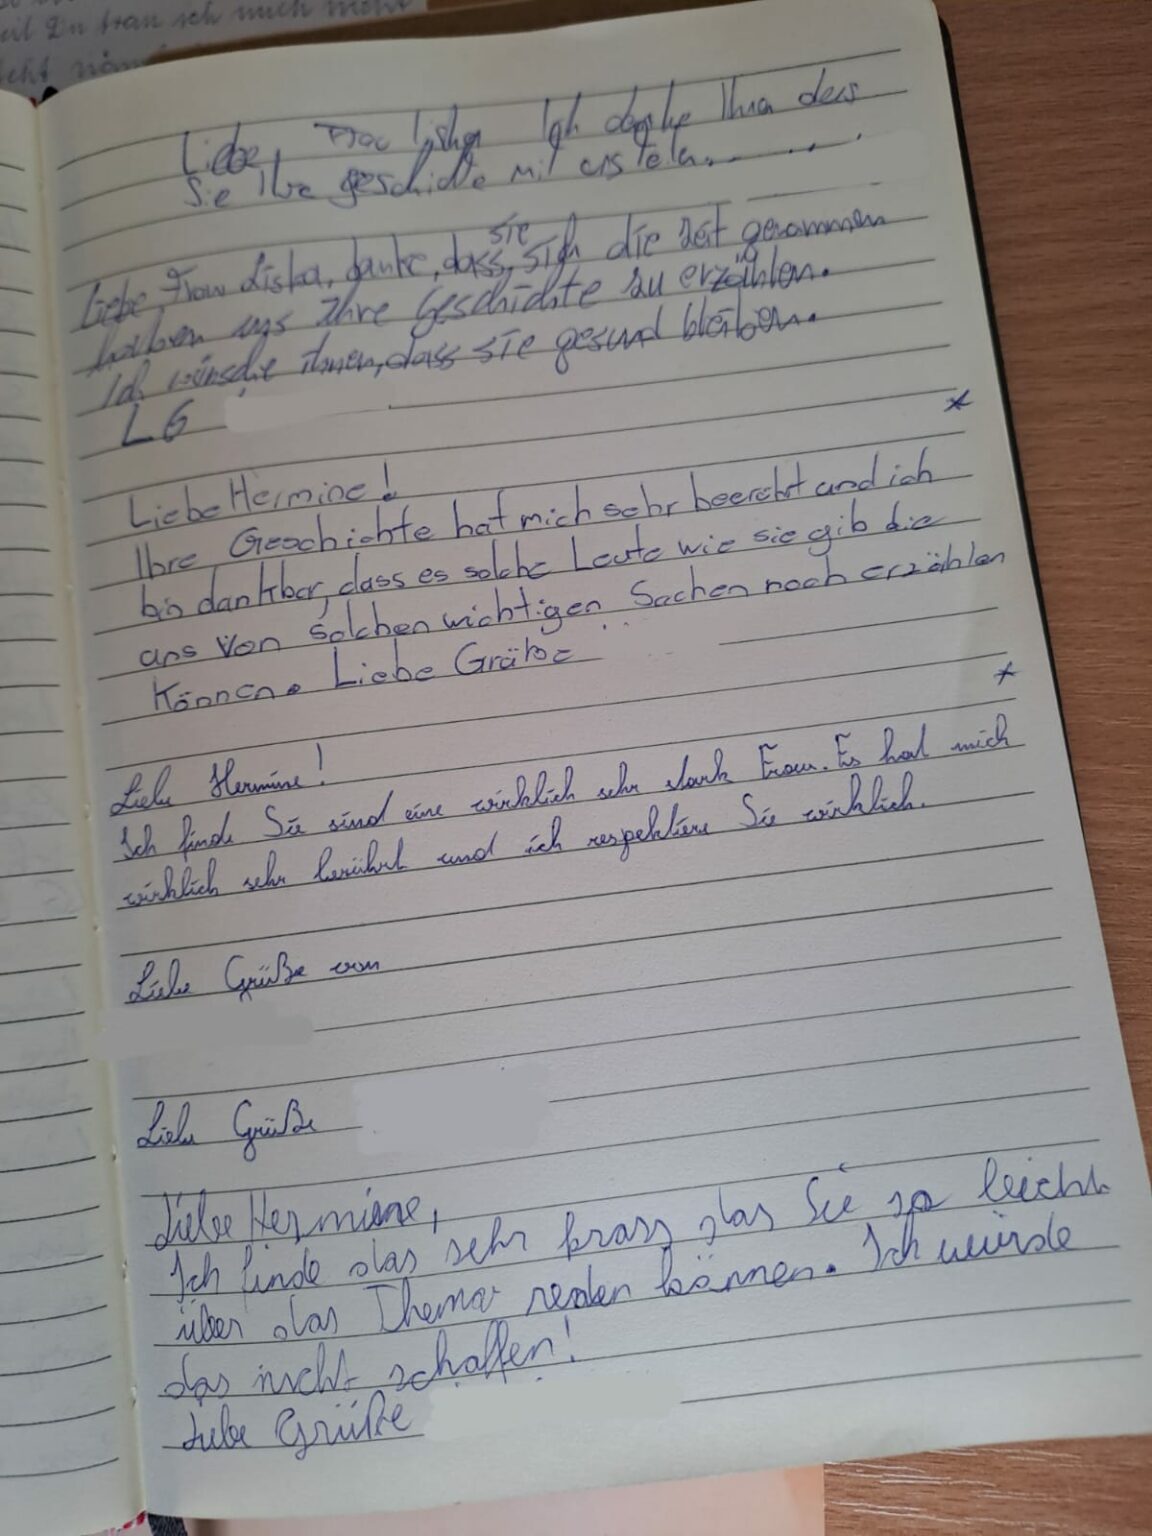 eil Du tran ich mich nicht
Liebe, Frau Liska Ich danke Ihn das
Sie Ihre geschichte mit ersteln........
sie
Liebe Frau Liska, danke, dass, sich die zeit genommen
haben uns Ihre Geschichte zu erzählen.
Ich wünsche ihnen, dass sie gesund bleiben.
LG
Liebe Hermine!
Ihre Geschichte hat mich sehr beerührt und ich
bin dankbar, dass es solche Leute wie sie gib die
uns von solchen wichtigen Sachen noch erzählen
können. Liebe Grüße
Liebe Hermine!
Ich finde Sie sind eine wirklich sehr stark Frau. Es hat mich
wirklich sehr berührt und ich respektiere Sie wirklich.
Liebe Grüße von
Liebe Grüße
Liebe Hermine,
Ich finde das sehr krass das Sie so leicht
über das Thema reden können. Ich würde
das nicht schaffen!
Liebe Grüße